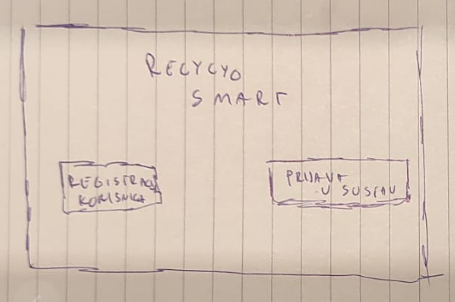 RECYCYO
SMART
REGISTRACIJA
KORISNIKA
PRIJAVA
U SUSTAV